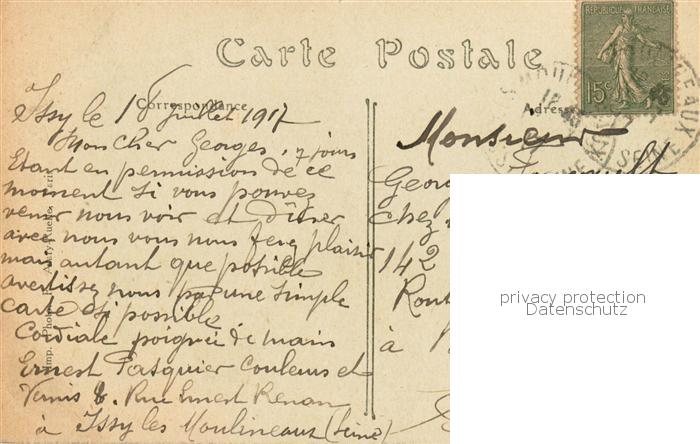 Carte Postale
RÉPUBLIQUE FRANÇAISE
15c
Correspondance
Adresse
SEINE
Issy le 18 juillet 1917
Mon cher Georges, 7 jours
Etant en permission de ce
moment si vous pouvez
venir nous voir et Dîner
avec nous vous nous ferez plaisir
mais autant que possible
avertissez nous par une simple
carte si possible
Cordiale poignée de main
Ernest Pasquier Couleurs et
Vernis 8. Rue Ernest Renan
à Issy les Moulineaux (Seine)
Monsieur
Georg
chez
142
Rout
à
privacy protection
Datenschutz